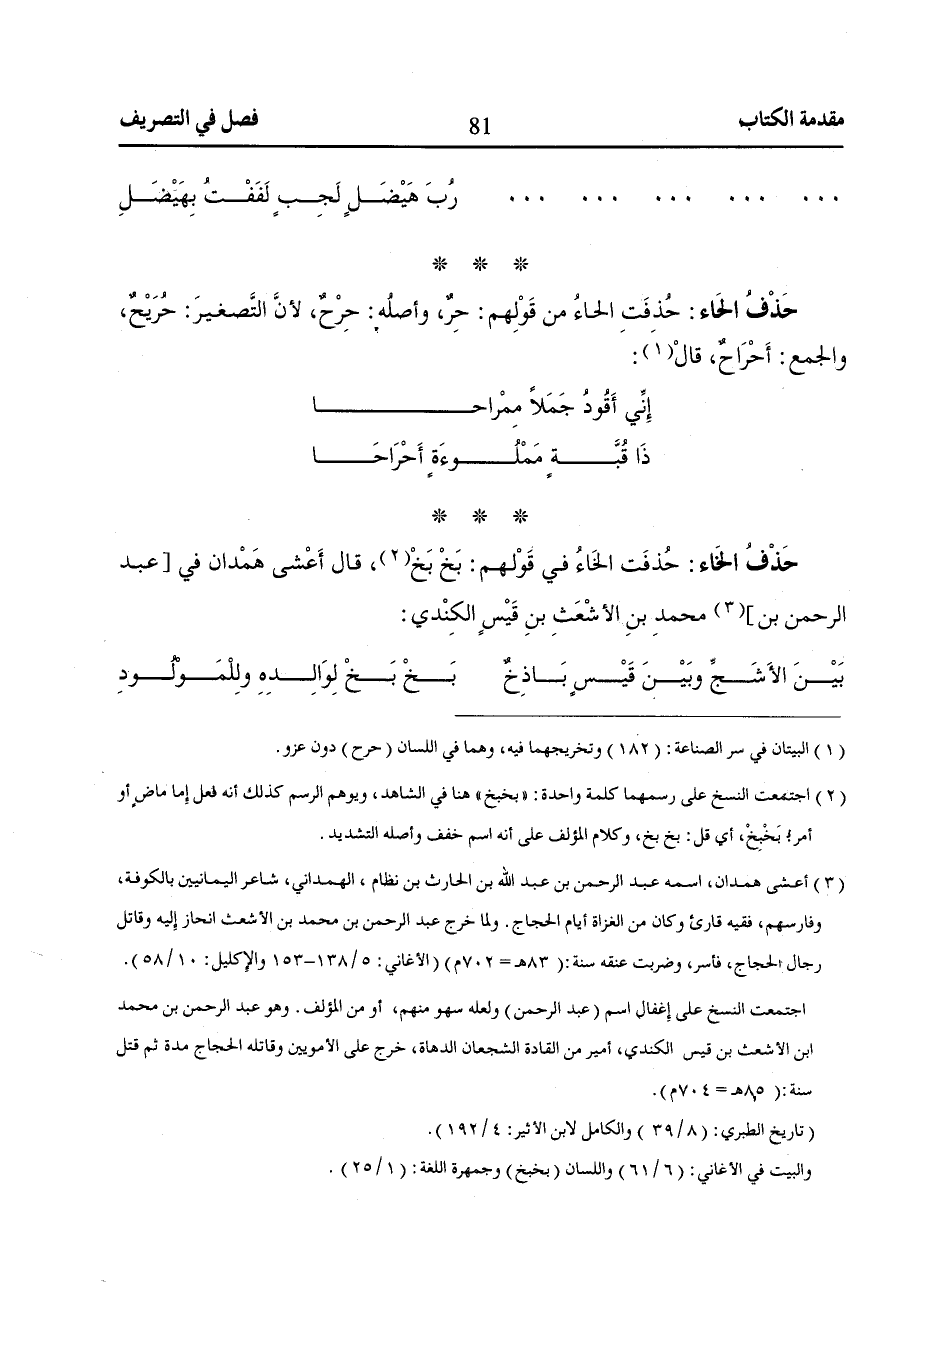 مقدمة الكتاب 81 فصل في التصريف
... ... ... ... ... رُبَ هَيْضَلٍ لَجِبٍ لَفَفْتُ بِهَيْضَلِ
* * *
حَذْفُ الحَاء : حُذفَت الحاءُ من قَوْلِهم : حِرٌ، وأصلُه : حِرْحٌ، لأنَّ التَّصغيرَ : حُرَيْحٌ،
والجمع : أَحْرَاحٌ، قال(١) :
إِنِّي أَقُودُ جَمَلاً مِمْراحـــا
ذَا قُبَّــةٍ مَمْلُــوءَةٍ أَحْرَاحَــا
* * *
حَذْفُ الخَاء : حُذفَت الخَاءُ فـي قَوْلـهم : بَخْ بَخْ(٢)، قـال أَعْشـى هَمْدان في [ عبـد
الرحمن بن ](٣) محمـدِ بـن الأشْعَـثِ بـن قَيْـسٍ الكنْدي :
بَيْــنَ الأَشَــجِّ وبَيْــنَ قَيْــسٍ بَــاذِخٌ بَــخْ بَــخْ لوَالِــدِه وللْمَــوْلُــودِ
( ١ ) البيتان في سر الصناعة : ( ١٨٢ ) وتخريجهما فيه، وهما في اللسان ( حرح ) دون عزو .
( ٢ ) اجتمعت النسخ على رسمهما كلمة واحدة : « بخبخ » هنا في الشاهد، ويوهم الرسم كذلك أنه فعل إما ماضٍ أو
أمر؛ بَخْبِخْ، أي قل : بخ بخ، وكلام المؤلف على أنه اسم خفف وأصله التشديد .
( ٣ ) أعشى همدان، اسمه عبد الرحمن بن عبد الله بن الحارث بن نظام ، الهمداني، شاعر اليمانيين بالكوفة،
وفارسهم، فقيه قارئ وكان من الغزاة أيام الحجاج . ولما خرج عبد الرحمن بن محمد بن الأشعث انحاز إليه وقاتل
رجال الحجاج، فأسر، وضربت عنقه سنة :( ٨٣هـ = ٧٠٢م) (الأغاني : ٥/ ١٣٨–١٥٣ والإكليل : ١٠ /٥٨).
اجتمعت النسخ على إغفال اسم ( عبد الرحمن ) ولعله سهو منهم، أو من المؤلف . وهو عبد الرحمن بن محمد
ابن الأشعث بن قيس الكندي، أمير من القادة الشجعان الدهاة، خرج على الأمويين وقاتله الحجاج مدة ثم قتل
سنة :( ٨٥هـ = ٧٠٤م).
( تاريخ الطبري : ( ٨ /٣٩ ) والكامل لابن الأثير : ٤ /١٩٢ ).
والبيت في الأغاني : ( ٦ /٦١ ) واللسان ( بخبخ ) وجمهرة اللغة : ( ١ /٢٥ ) .